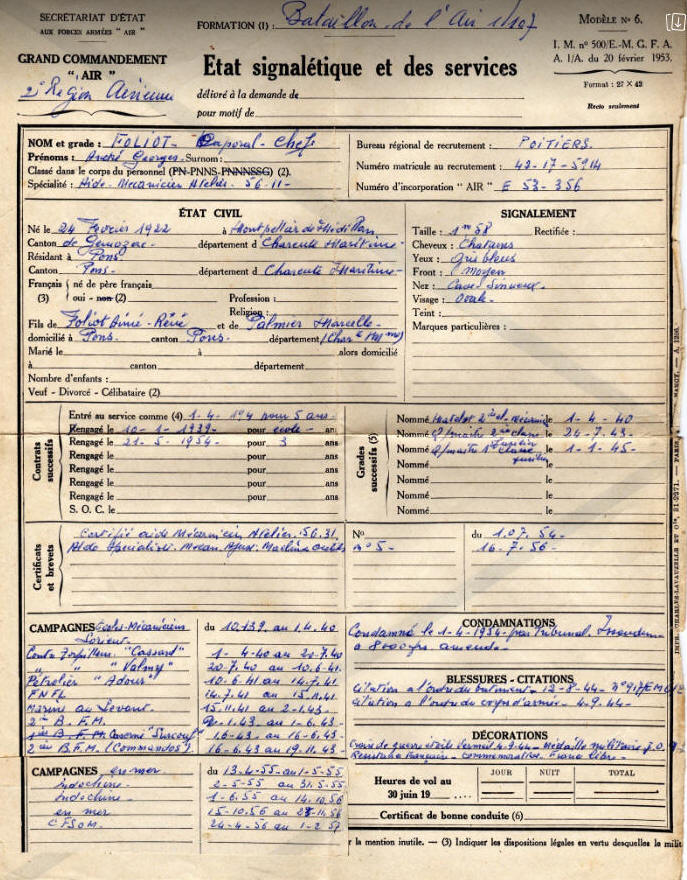 SECRÉTARIAT D'ÉTAT
AUX FORCES ARMÉES "AIR"
GRAND COMMANDEMENT
"AIR"
2e Région Aérienne
FORMATION (1) : Bataillon de l'Air 1/107
Etat signalétique et des services
délivré à la demande de
pour motif de
MODÈLE No 6.
I. M. no 500/E.-M. G. F. A.
A. I/A. du 20 février 1953.
Format : 27 X 42
Recto seulement
NOM et grade : FOLIOT - Caporal-Chef
Prénoms : André Georges. Surnom :
Classé dans le corps du personnel (PN-PNNS-PNNNSSG) (2).
Spécialité : Aide-Mécanicien Atelier. 56-11-
Bureau régional de recrutement : POITIERS.
Numéro matricule au recrutement : 42-17-5914
Numéro d'incorporation "AIR" E 53-356
ÉTAT CIVIL
Né le 24 Février 1922 à Montpellier de Médillan
Canton de Gemozac - département d Charente Maritime-
Résidant à Pons
Canton Pons- département d Charente Maritime-
Français né de père français
(3) oui - non (2) Profession :
Religion :
Fils de Foliot Aimé-Réné et de Palmier Marcelle-
domicilié à Pons. canton Pons. département (Charte Mme)
Marié le à alors domicilié
à canton département
Nombre d'enfants :
Veuf - Divorcé - Célibataire (2)
SIGNALEMENT
Taille : 1m58 Rectifiée :
Cheveux : Chatains
Yeux : gris bleus
Front : Moyen
Nez : Cave-Sinueux-
Visage : Ovale-
Teint :
Marques particulières :
Contrats successifs
Entré au service comme (4) 1-4-194 pour 5 ans-
Rengagé le 10-1-1939- pour école- ans
Rengagé le 21-5-1954- pour 3 ans
Rengagé le pour ans
Rengagé le pour ans
Rengagé le pour ans
Rengagé le pour ans
S. O. C. le
Grades successifs (5)
Nommé Matelot 2e le 1-4-40
Nommé Q/maitre 2e classe le 24-7-43-
fusilier
Nommé Q/maitre 1e classe le 1-1-45-
fusilier
Nommé le
Nommé le
Nommé le
Nommé le
Certificats et brevets
Certifié aide Mécanicien Atelier. 56.31. No du 1.07.54-
Aide Spécialisé. Mécan. Ajust. Machine outils no 5- 16-7-56-
CAMPAGNES Ecoles-Mécaniciens du 10.1.39. au 1.4.40
Lorient-
Contre Torpilleur "Cassard" 1-4-40 au 20-7-40
" " "Valmy" 20.7.40 au 10-6-41-
Pétrolier "Adour" 10-6-41 au 14.7.41-
FNFL 14.7.41 au 15.11.41-
Marine au Levant. 15.11.41 au 2-1.43-
2ème B. F. M. 2-1.43- au 1-6.43-
B. F. M. Caserne "Surcouf" 1.6-43- au 16-6.43-
2ème B.F.M. (Commandos) 16-6.43 au 19.11.43-
CAMPAGNES en mer du 13-4-55 au 1-5-55
Indochine- 2-5-55 au 31.5-55-
Indochine- 1-6.55 au 14.10.56
en mer 15-10.56 au
CFSOM- 24-4-56 au 1-2-57
CONDAMNATIONS
Condamné le 1-4-1954- par Tribunal,
à 8000frs amende-
BLESSURES - CITATIONS
Citation à l'ordre du batiment- 12-8-44-
Citation à l'ordre du corps d'armée- 4-9.44-
DÉCORATIONS
Croix de guerre étoile Vermeil 4-9-44- Médaille militaire J.O.
Résistance Française- commémorative. France Libre-
Heures de vol au
30 juin 19
JOUR NUIT TOTAL
Certificat de bonne conduite (6)
r la mention inutile. — (3) Indiquer les dispositions légales en vertu desquelles la milit
IMPR. CHARLES-LAVAUZELLE ET Cie, 21-2271. — PARIS, NANCY. — A. 1256.